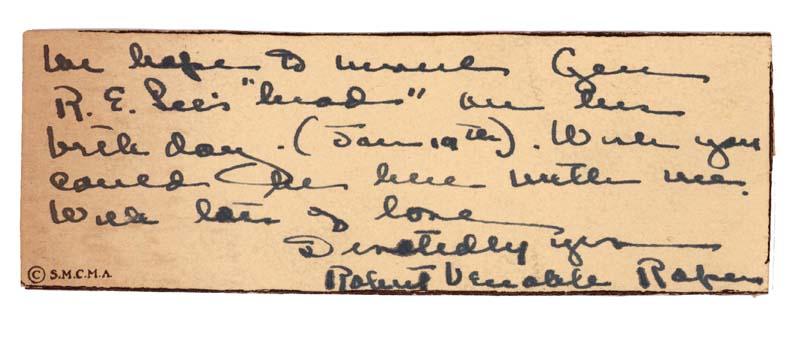 We hope to unveil Gen
R. E. Lee's "head" on his
birth day. (Jan 19th). Wish you
could be here with me.
With lots of love
Devotedly yrs
© S.M.C.M.A.
Robert Venable Roper